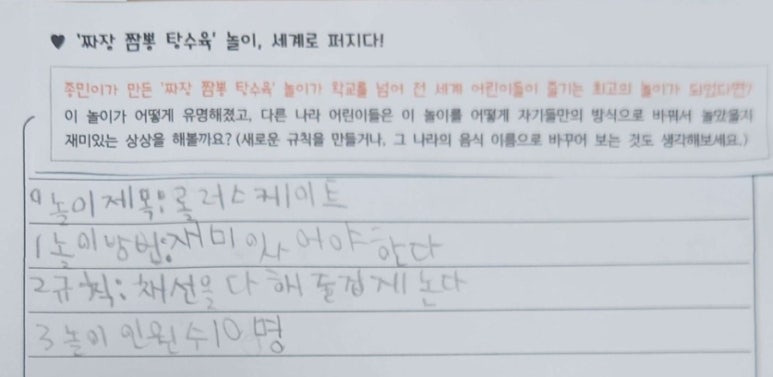 ♥ '짜장 짬뽕 탕수육' 놀이, 세계로 퍼지다!
종민이가 만든 '짜장 짬뽕 탕수육' 놀이가 학교를 넘어 전 세계 어린이들이 즐기는 최고의 놀이가 되었다면?
이 놀이가 어떻게 유명해졌고, 다른 나라 어린이들은 이 놀이를 어떻게 자기들만의 방식으로 바꿔서 놀았을지
재미있는 상상을 해볼까요? (새로운 규칙을 만들거나, 그 나라의 음식 이름으로 바꾸어 보는 것도 생각해보세요.)
놀이제목: 롤러스케이트
1 놀이방번: 재미 있서어야 한다
2 규칙: 채선을 다해 둘겁게 논다
3 놀이 인원수 10명